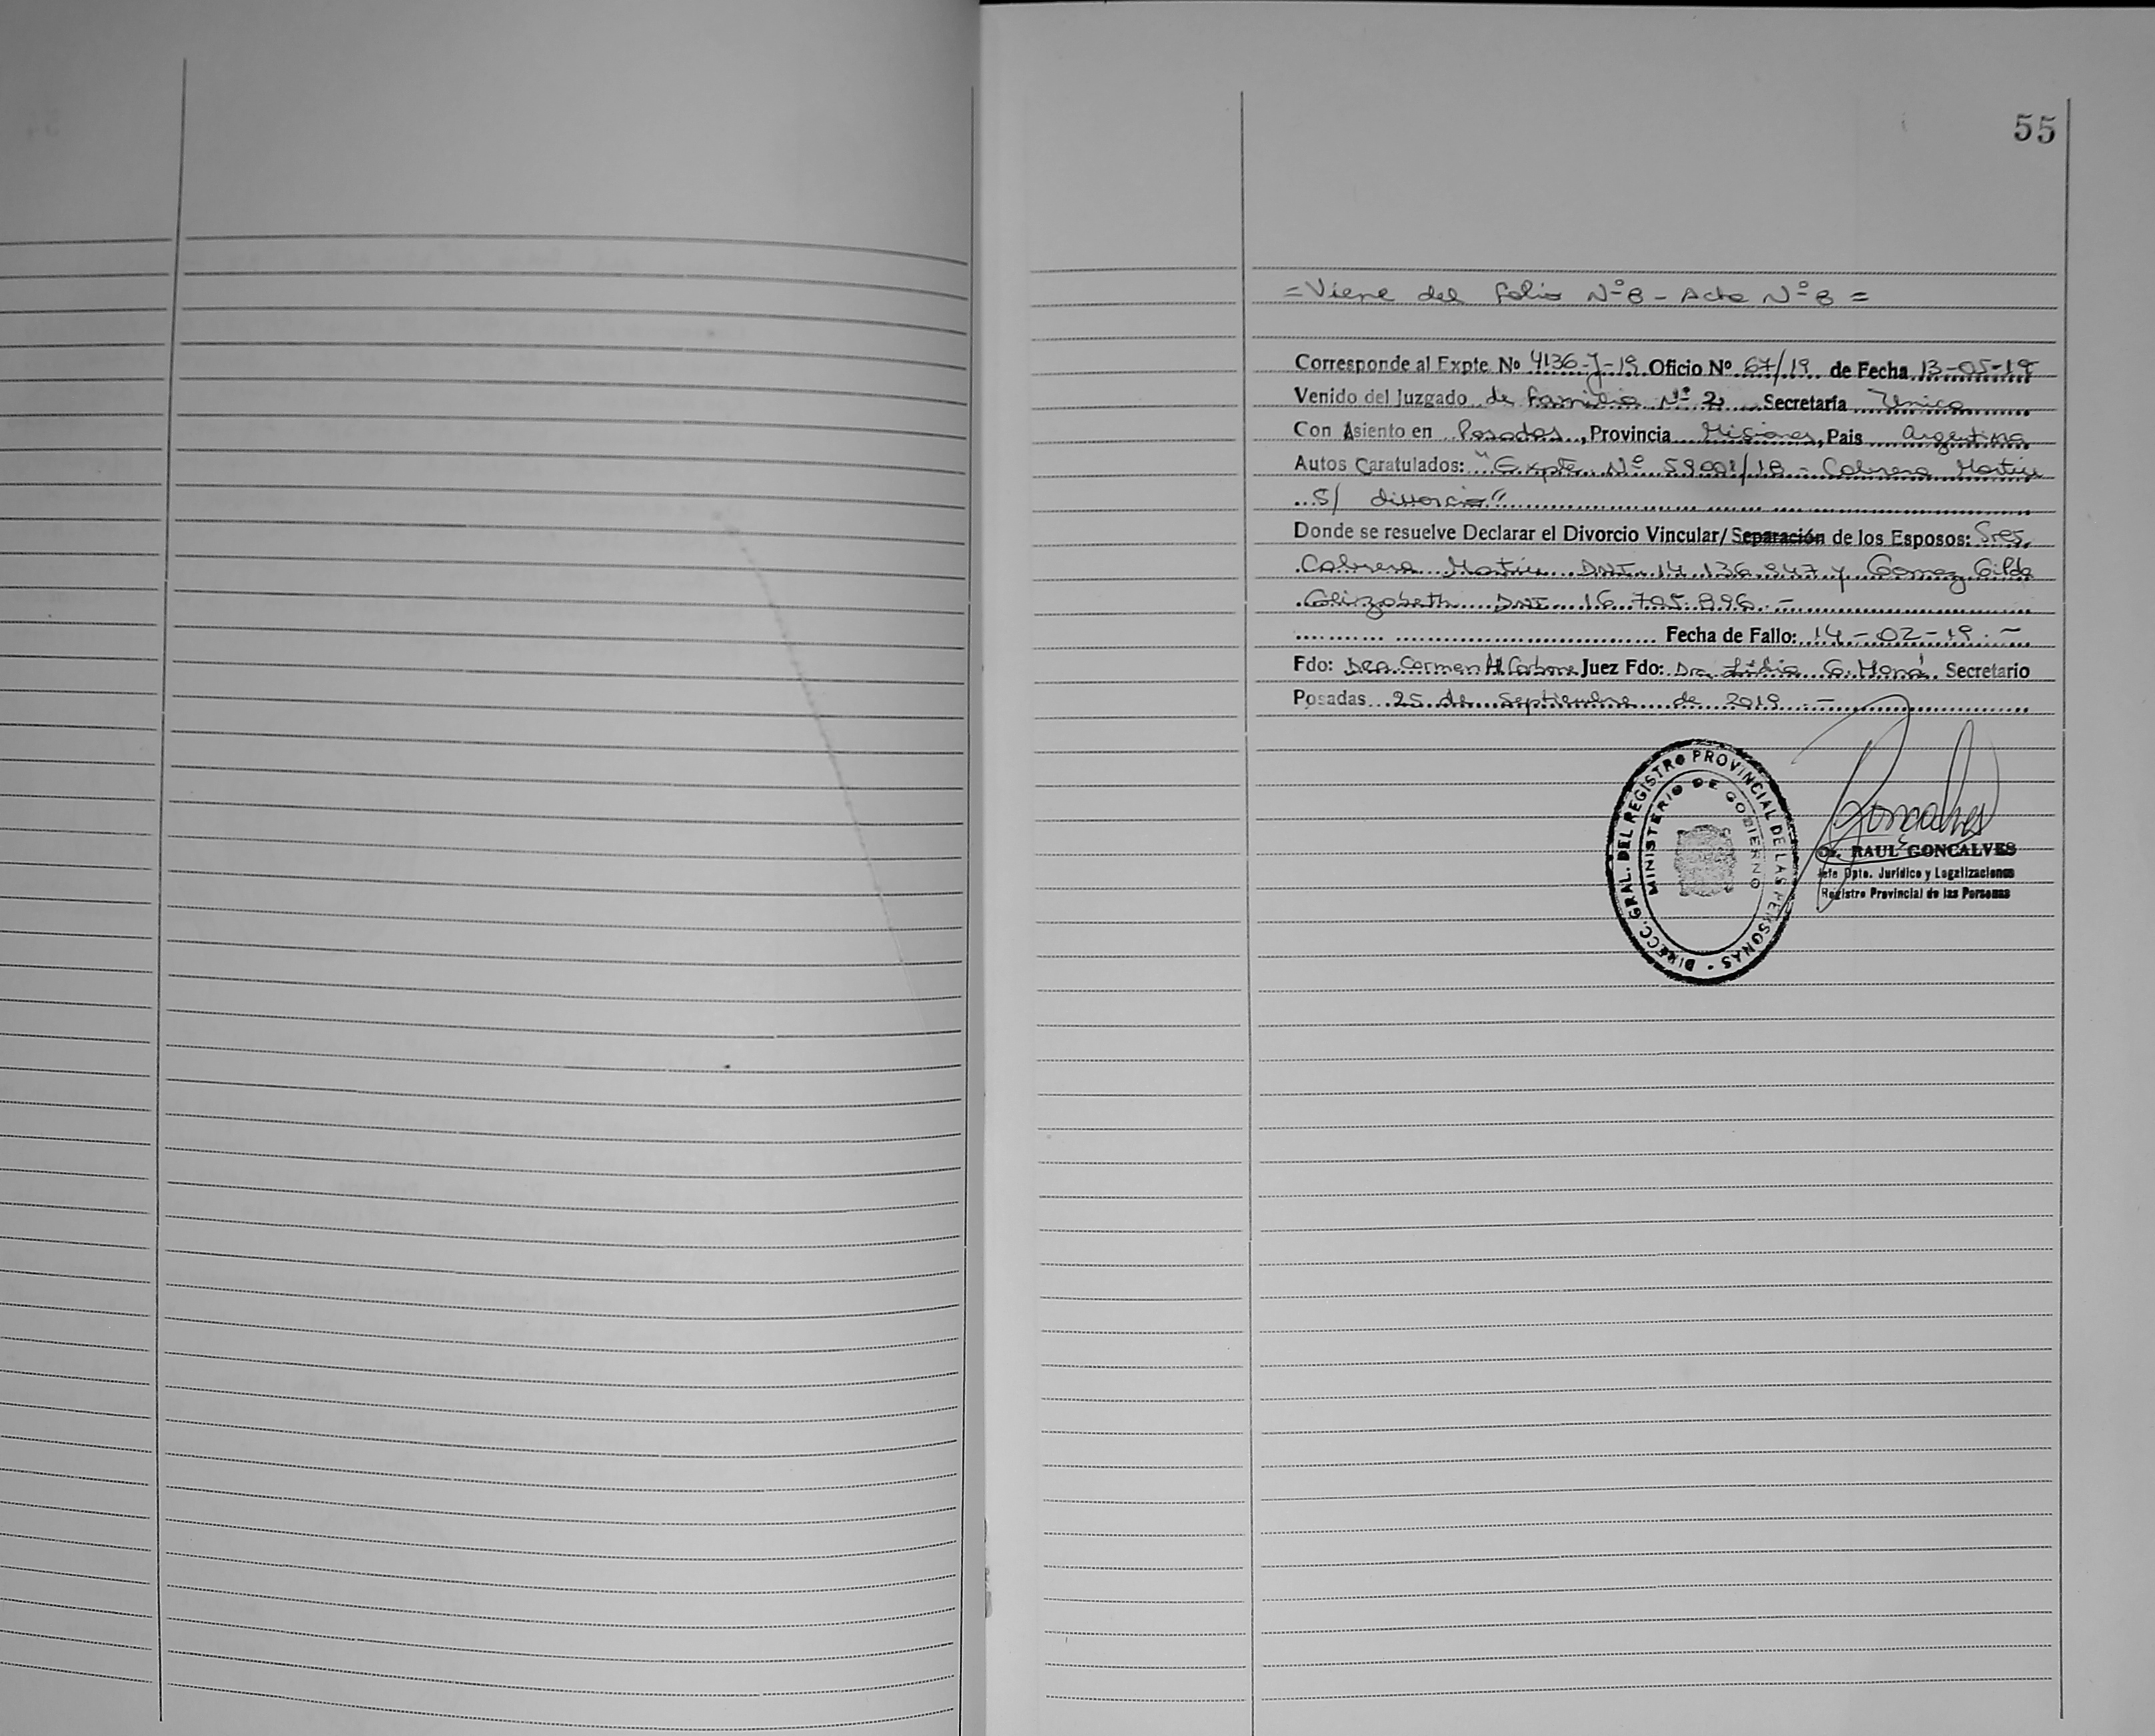 55
= Viene del folio Nº 8 - Acta Nº 8 =
Corresponde al Expte Nº 4136-J-19 Oficio Nº 67/19 de Fecha 13-05-19
Venido del Juzgado de familia Nº 2 Secretaría Unica
Con Asiento en Posadas, Provincia Misiones, Pais Argentina
Autos Caratulados: "Expte Nº 59001/18 - Cabrera Martin
S/ divorcio"
Donde se resuelve Declarar el Divorcio Vincular/ Separación de los Esposos: Sres.
Cabrera Martin DNI 14.136.947 y Gomez Gilda
Elizabeth DNI 16.705.896.-
Fecha de Fallo: 14-02-19.-
Fdo: Dra. Carmen H. Carbone Juez Fdo: Dra. Lidia G. Juez Secretario
Posadas 25 de Septiembre de 2019.-
DIRECC. GRAL. DEL REGISTRO PROVINCIAL DE LAS PERSONAS -
MINISTERIO DE GOBIERNO
Goncalves
Dr. RAUL GONCALVES
Jefe Dpto. Jurídico y Legalizaciones
Registro Provincial de las Personas